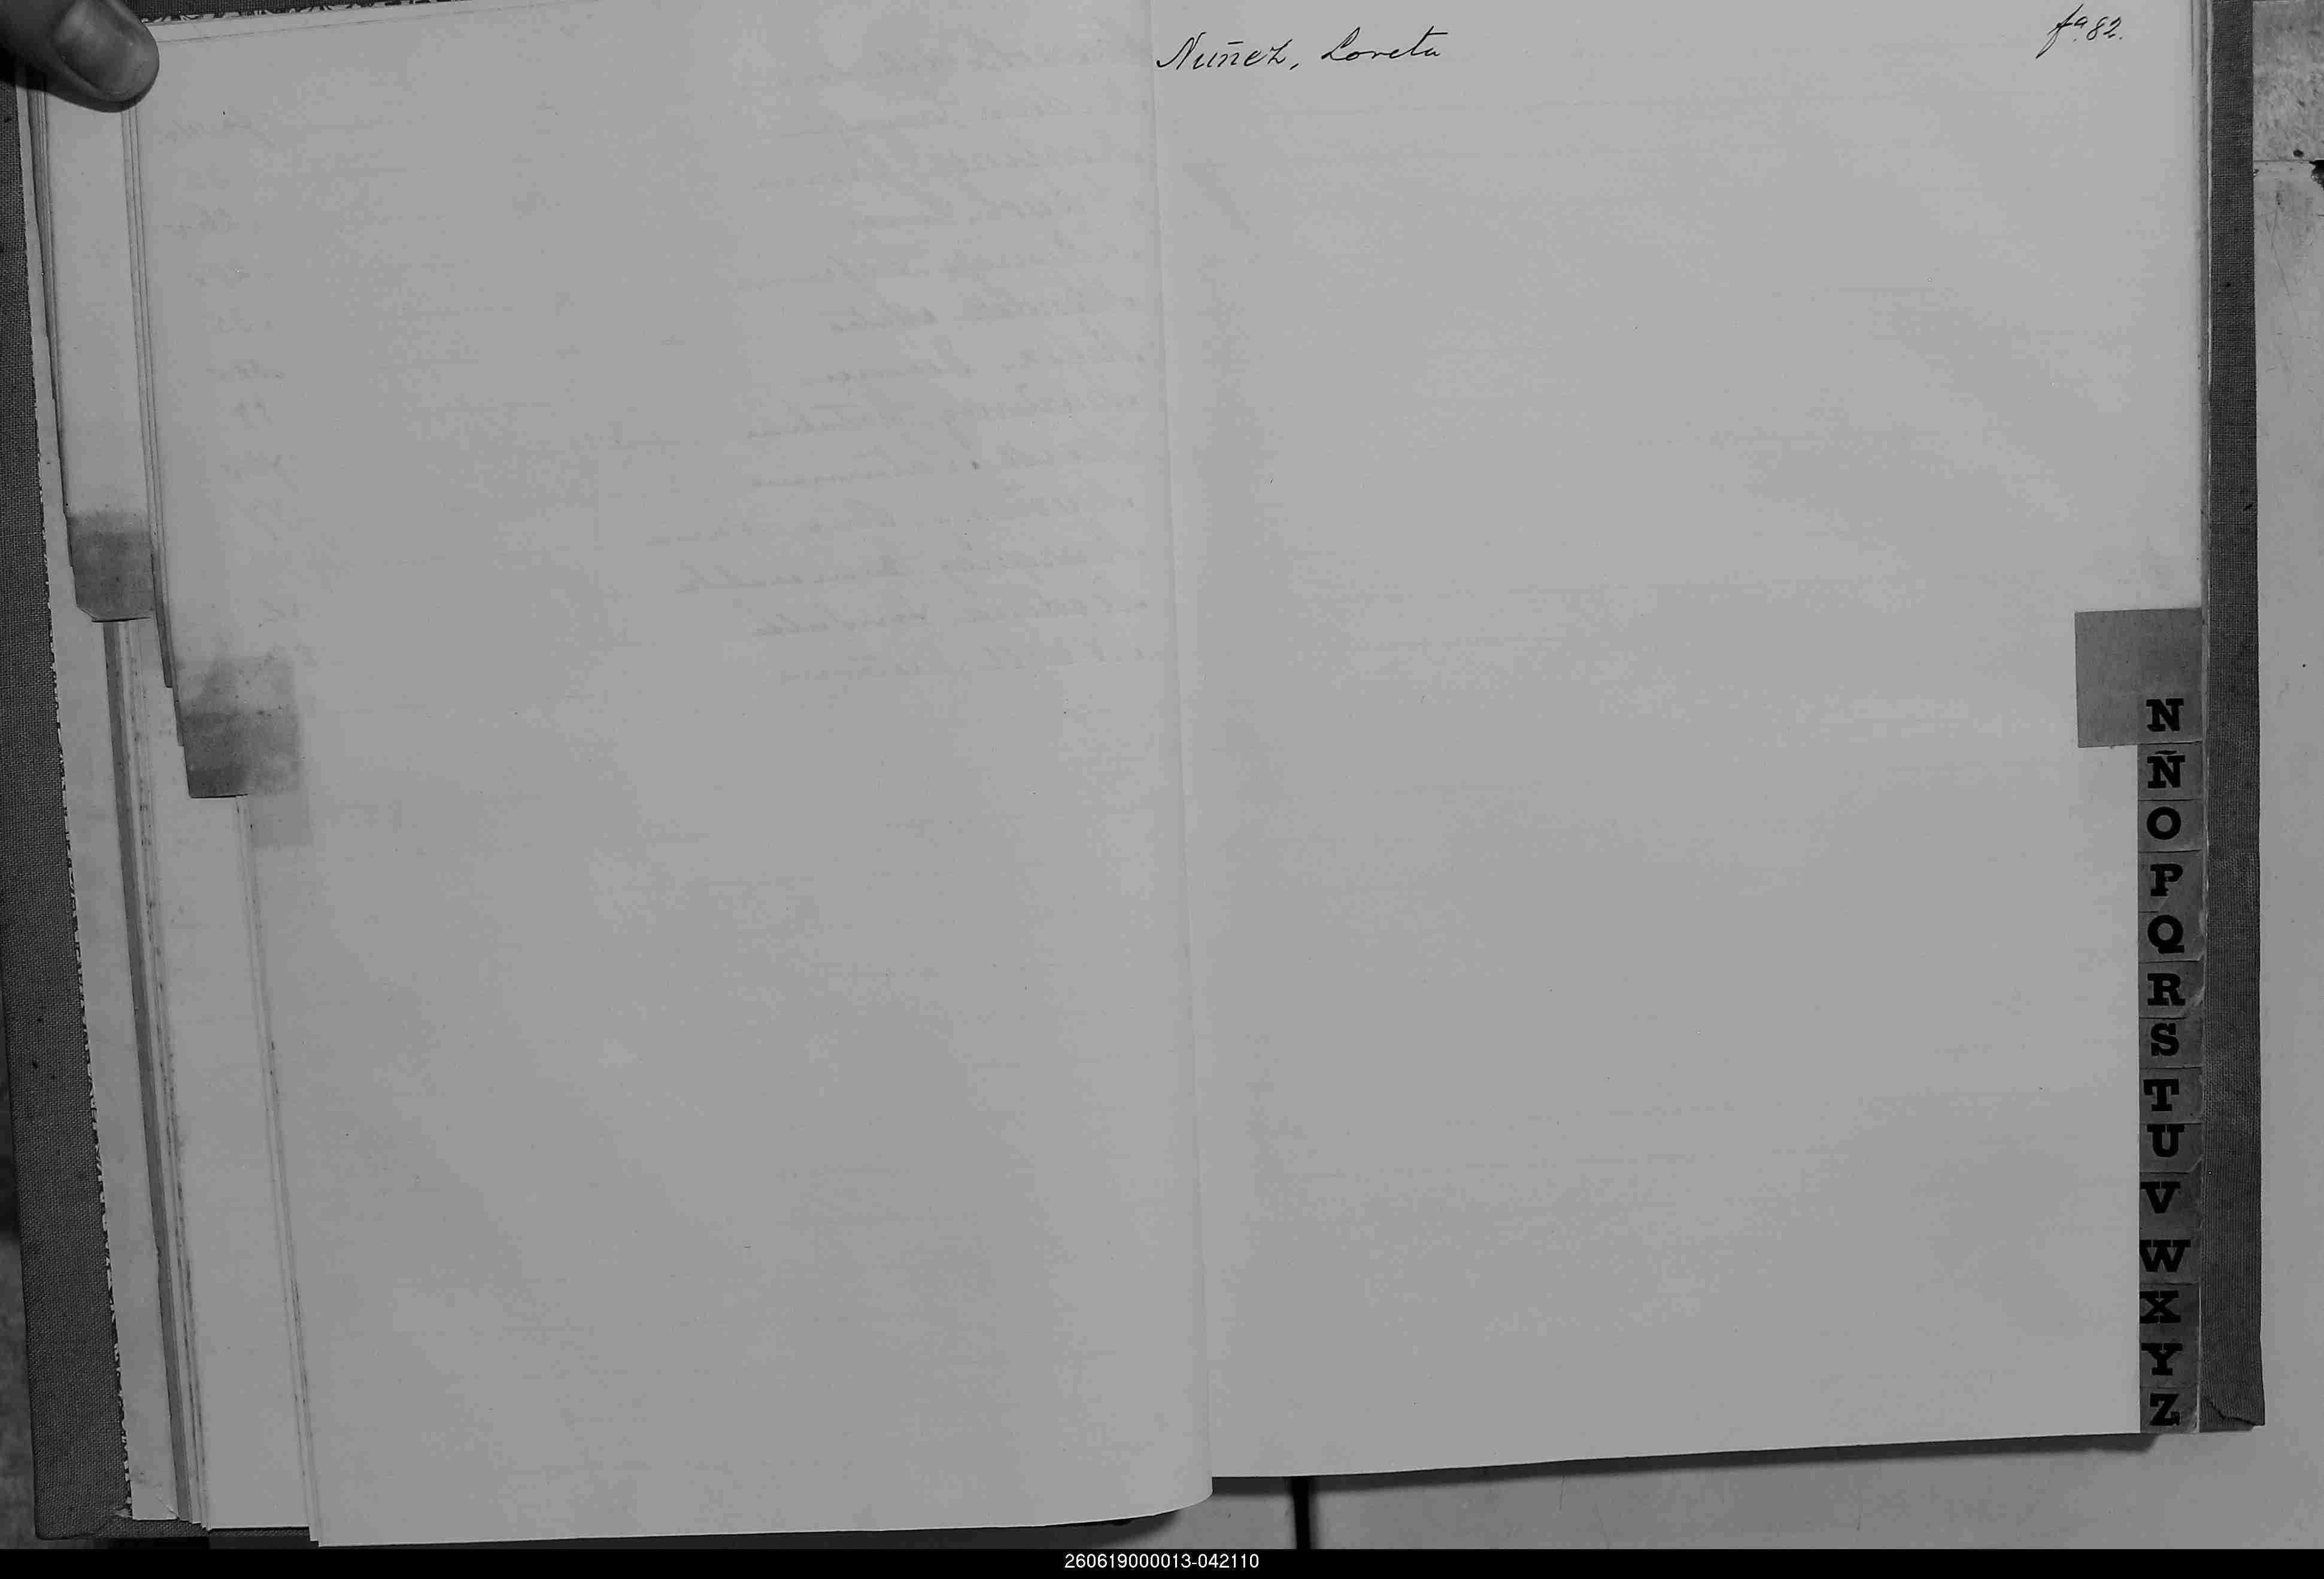 Nuñez, Loreta fª 82.
N
Ñ
O
P
Q
R
S
T
U
V
W
X
Y
Z
260619000013-042110